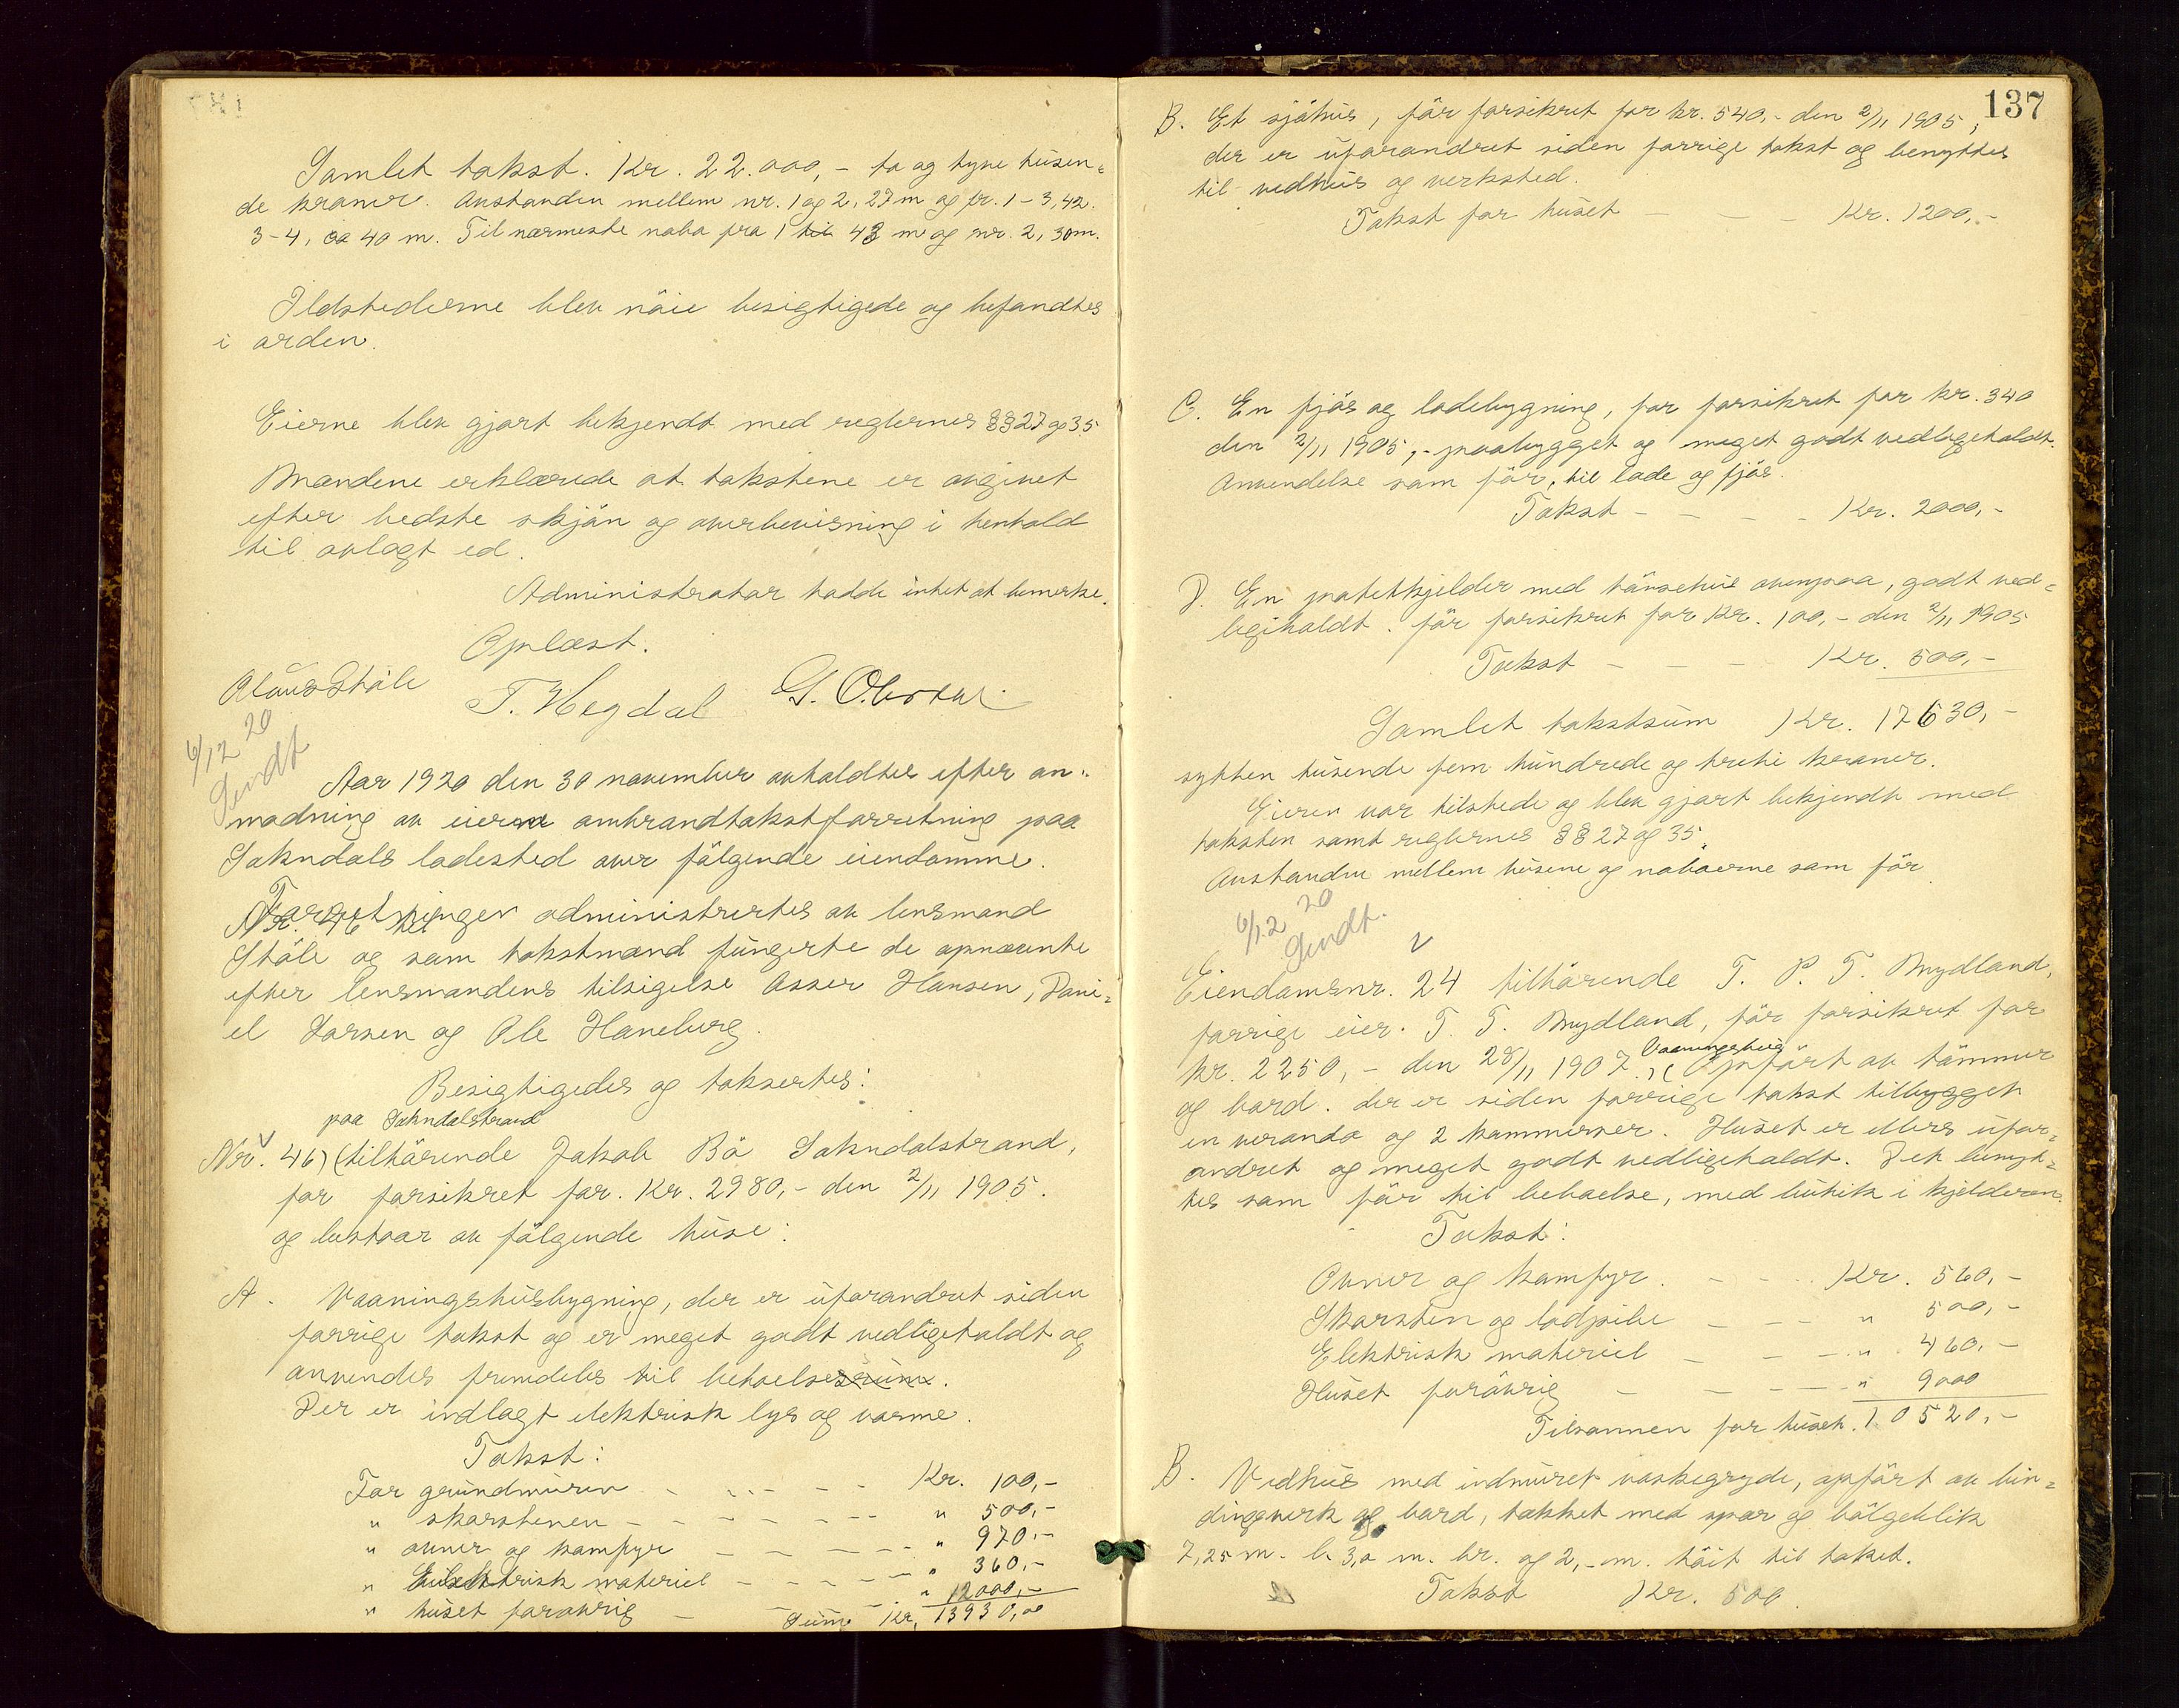 Samlet takst. Kr. 22.000,- to og tyve tusen-
de kroner. Avstanden mellem nr. 1 og 2, 27 m og fr. 1-3, 42.
3-4, ca 40 m. Til nærmeste nabo fra 1 til 43 m og nr. 2, 30 m.
Ildstederne blev nöie besigtigede og befandtes
i orden.
Eierne blev gjort bekjendt med reglernes §§ 27 og 35
Mændene erklærede at takstene er avgivet
efter bedste skjön og overbevisning i henhold
til avlagt ed.
Administrator hadde intet at bemerke.
Oplæst.
Olaus Ståle T. Hegdal
6/12 20
Sendt
Aar 1920 den 30 november avholdtes efter an-
modning av eierne ombrandtakstforretning paa
Sokndals ladested over fölgende eiendomme.
Forretningen administrertes av lensmand
Ståle og som takstmænd fungerte de opnævnte
efter lensmandens tilsigelse Asser Hansen, Dani-
el Larsen og Ole Haneberg.
Besigtigedes og taksertes:
paa Sokndalstrand
Nr. 46) (tilhörende Jakob Bö Sokndalstrand,
för forsikret for. Kr. 2980,- den 2/11 1905.
og bestaar av fölgende huse:
A. Vaaningshusbygning, der er uforandret siden
forrige takst og er meget godt vedligeholdt og
anvendes fremdeles til beboelsesrum.
Der er indlagt elektrisk lys og varme.
Takst:
For grundmuren - - - - Kr. 100,-
" skorstenen - - - - " 500,-
" ovner og komfyr - - - - " 970.-
" elektrisk materiel - - - - " 360,-
" huset forövrig - - " 12000,-
Sum Kr. 13930,00
137
B. Et sjöhus, för forsikret for kr. 540,- den 2/11 1905,
der er uforandret siden forrige takst og benyttes
til vedhus og verksted.
Takst for huset - - - Kr. 1200,-
C. En fjös og ladebygning, för forsikret for kr. 340
den 2/11 1905,- paabygget og meget godt vedligeholdt.
Anvendelse som för, til lade og fjös.
Takst - - - - Kr. 2000,-
D. En potetkjelder med hönsehus ovenpaa, godt ved-
ligeholdt. för forsikret for Kr. 100,- den 2/11 1905
Takst - - - Kr. 500,-
Samlet takstsum Kr. 17630,-
sytten tusende fem hundrede og treti kroner.
Eieren var tilstede og blev gjort bekjendt med
taksten samt reglernes §§ 27 og 35.
Avstanden mellem husene og naboerne som för
6/12 20
Sendt.
Eiendomsnr. 24 tilhörende T. P. T. Mydland,
forrige eier. T. T. Mydland, för forsikret for
Vaaningshus
kr. 2250,- den 28/11 1907. Opfört av tömmer
og bord. der er siden forrige takst tilbygget
en veranda og 2 kammerser. Huset er ellers ufor-
andret og meget godt vedligeholdt. Det benyt-
tes som för til beboelse, med butik i kjelderen.
Takst:
Ovner og komfyr. - - Kr. 560,-
Skorsten og lodpibe - - - " 500,-
Elektrisk materiel - - - " 460,-
Huset forövrig - - - - " 9000
Tilsammen for huset. 10520,-
B. Vedhus med indmuret vaskegryde, opfört av bin-
dingverk og bord, tækket med spon og bölgeblik
7,25 m. l. 3,0 m. br. og 2,- m. höit til taket.
Takst Kr. 500.